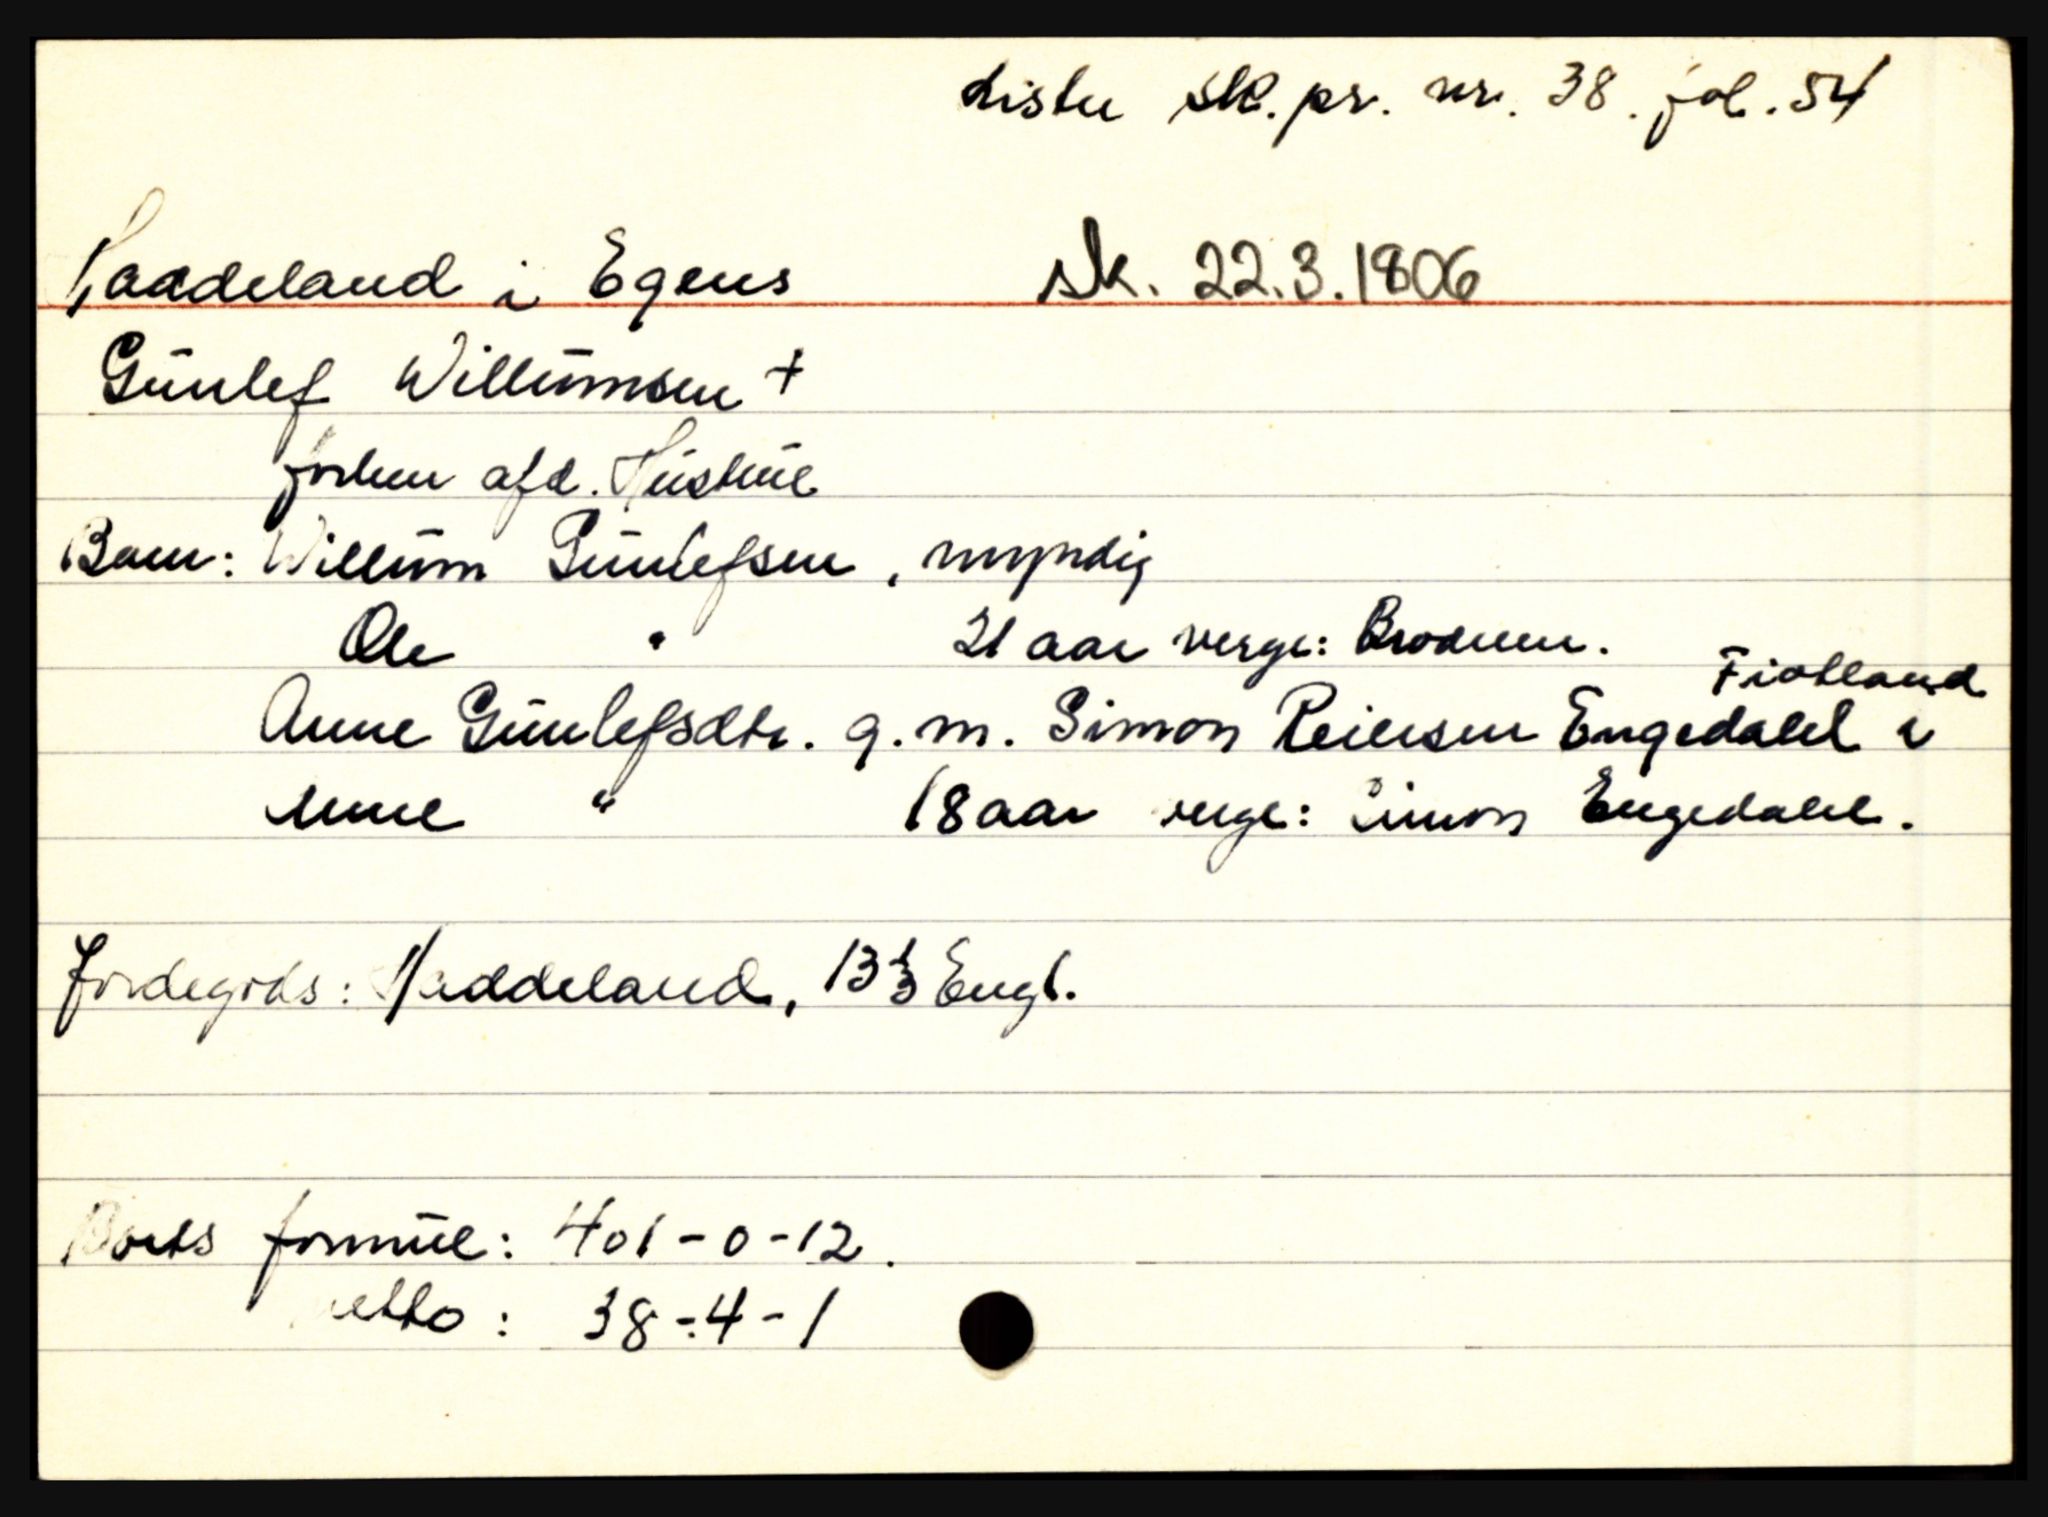 Lister sk. pr. nr. 38. fol. 54
Haadeland i Egens sk. 22.3.1806
Gŭnlef Willŭmsen +
forhen afd. Hŭstrŭe
Barn: Willŭm Gŭnlefsen, myndig
Ole " 21 aar verge: Broderen.
Fiotland
Anne Gŭnlefsdtr. g. m. Simon Reiersen Engedahl i
" 18 aar verge: Simon Engedahl.
Jordegods: Haddeland, 13 1/3 Engl.
Boets formŭe: 401-0-12.
netto: 38-4-1